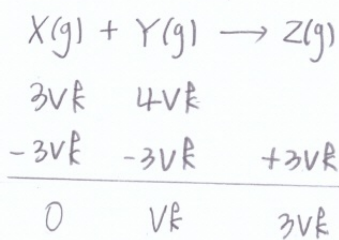 X(g) + Y(g) → Z(g)
3Vk 4Vk
-3Vk -3Vk +3Vk
0 Vk 3Vk